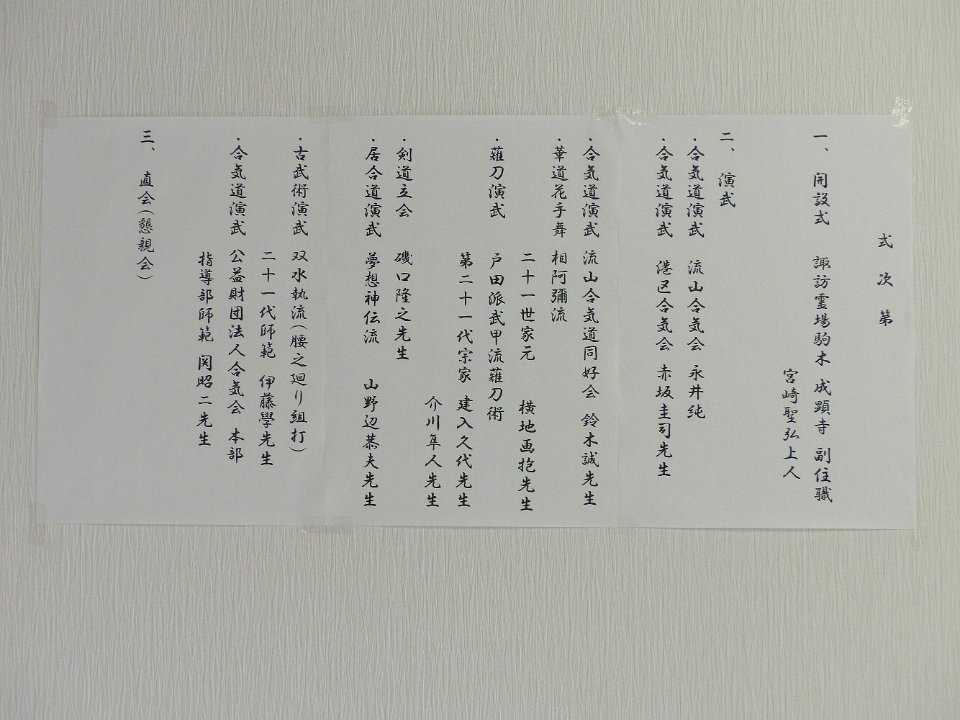 式次第
一、開設式 諏訪霊場駒木 成顕寺 副住職
宮崎聖弘上人
二、演武
・合気道演武 流山合気会 永井純
・合気道演武 港区合気会 赤坂圭司先生
・合気道演武 流山合気道同好会 鈴木誠先生
・華道花手舞 相阿彌流
二十一世家元 横地画抱先生
・薙刀演武 戸田派武甲流薙刀術
第二十一代宗家 建入久代先生
介川隼人先生
・剣道立会 磯口隆之先生
・居合道演武 夢想神伝流 山野辺恭夫先生
・古武術演武 双水執流(腰之廻り組打)
二十一代師範 伊藤學先生
・合気道演武 公益財団法人合気会 本部
指導部師範 関昭二先生
三、直会(懇親会)